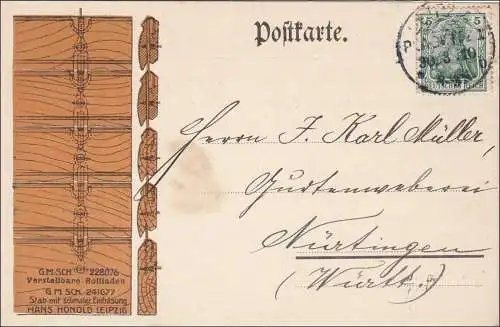 Postkarte.
5
5
DEUTSCHES REICH
20.3.10
Herrn F. Karl Müller,
Gurtenweberei
Nürtingen
(Württ.)
G.M.SCH. 228076
Verstellbare Rollladen
G.M.SCH. 241677
Stab mit schmaler Einfräsung
HANS HONOLD LEIPZIG